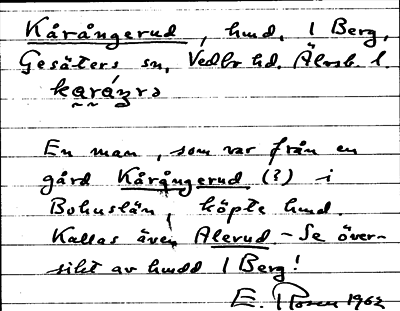 Kårångerud, hmd, 1 Berg,
Gesäters sn, Vedbo hd. Älvsb. l.
En man, som var från en
gård Kårångerud (?) i
Bohuslän, köpte hmd.
Kallas även Alerud – Se över-
sikt av hmdd 1 Berg!
E. Rosen 1962